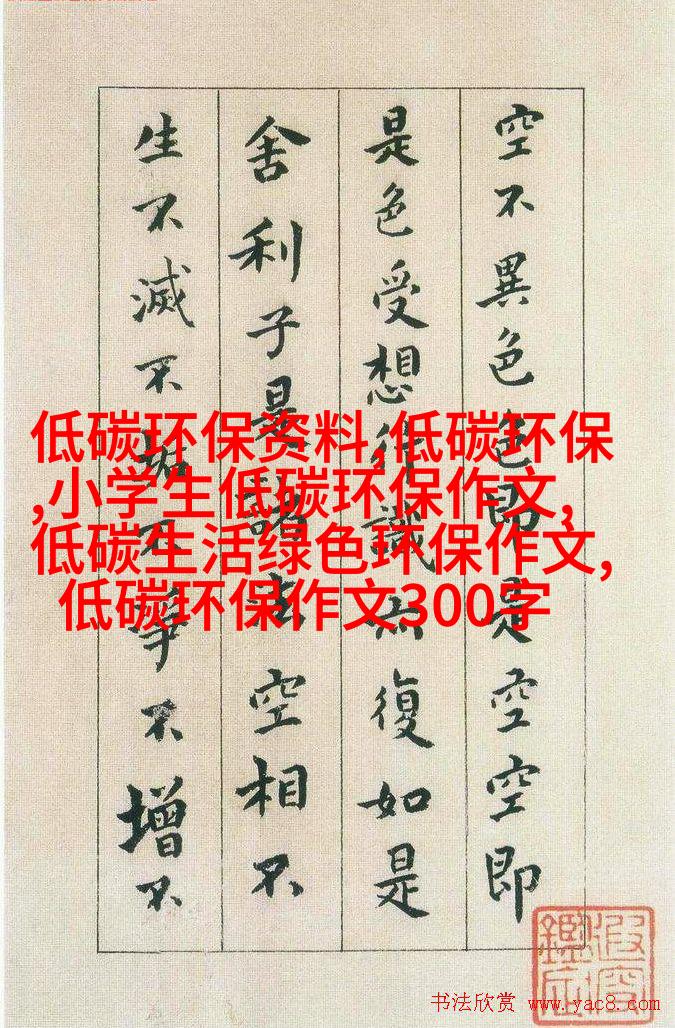 空不異色色即是空空即
是色受想行識亦復如是
舍利子是諸法空相不
生不滅不垢不淨不增不
低碳环保资料,低碳环保
,小学生低碳环保作文,
低碳生活绿色环保作文,
低碳环保作文300字
书法欣赏 www.yac8.com